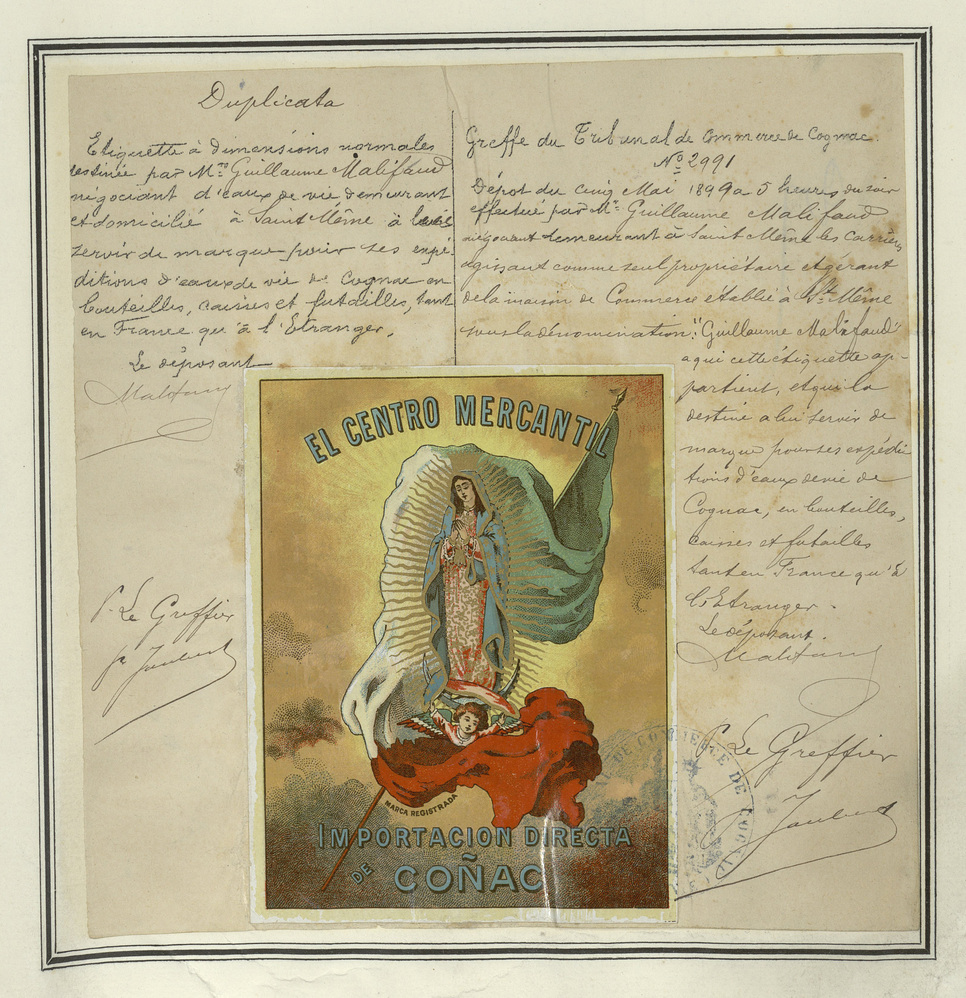 Duplicata
Etiquette à dimensions normales
destinée par Mr. Guillaume Malifaud
négociant d'eaux de vie demeurant
et domicilié à Saint Même à
servir de marque pour ses expé-
ditions d'eaux de vie de Cognac en
bouteilles, caisses et futailles, tant
en France qu'à l'Etranger.
Le déposant
Malifaud
P. Le Greffier
Greffe du Tribunal de Commerce de Cognac
No. 2991
Dépot du cinq Mai 1899 a 5 heures du soir
effectué par Mr. Guillaume Malifaud
négociant demeurant à Saint Même les Carrières
agissant comme seul propriétaire et gerant
de la maison de Commerce établie à St. Même
sous la dénomination: "Guillaume Malifaud"
a qui cette étiquette ap-
partient, et qui la
destine a lui servir de
marque pour ses expédi
tions d'eaux de vie de
Cognac, en bouteilles,
caisses et futailles
tant en France qu'à
l'Etranger.
Le déposant.
Malifaud
P. Le Greffier
EL CENTRO MERCANTIL
MARCA REGISTRADA
IMPORTACION DIRECTA
DE COÑAC
DE COMMERCE DE COGNAC